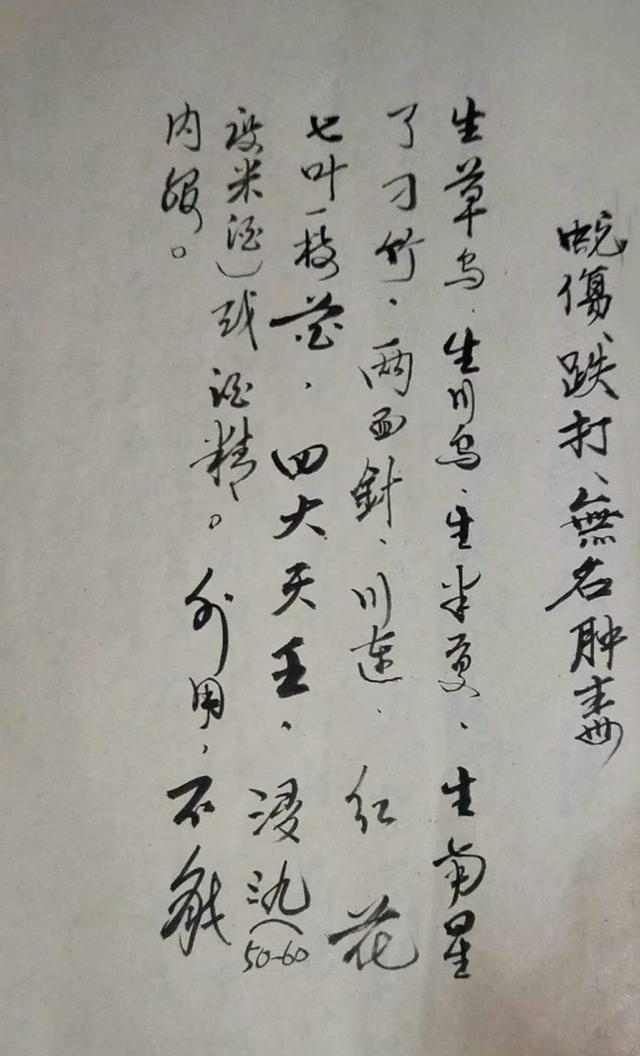 蛇傷、跌打、無名肿毒
生草乌、生川乌、生半夏、生南星
了刁竹、两面針、川連、红花
七叶一枝花、四大天王、浸氿(50-60
度米酒)或酒精。外用，不能
内服。